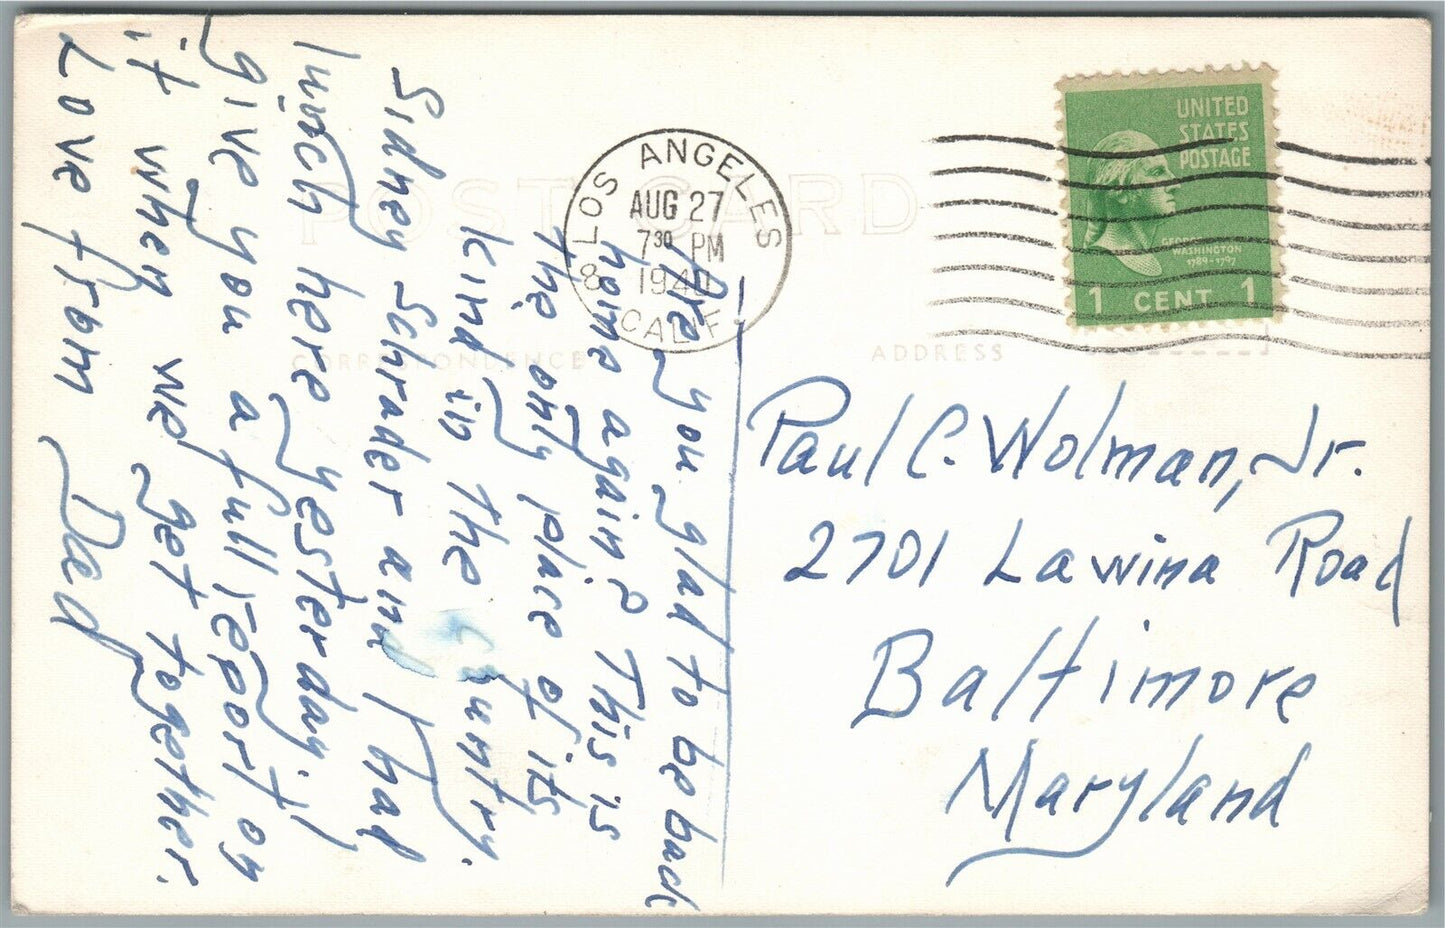 POST CARD
CORRESPONDENCE
ADDRESS
LOS ANGELES
AUG 27
7 30 PM
1940
8
CALIF.
UNITED
STATES
POSTAGE
GEORGE
WASHINGTON
1789-1797
1 CENT 1
Are you glad to be back
home again? This is
the only place of its
kind in the country.
Sidney Schrader and I had
lunch here yesterday. I'll
give you a full report on
it when we get together.
Love from
Dad
Paul C. Wolman, Jr.
2701 Lawina Road
Baltimore
Maryland